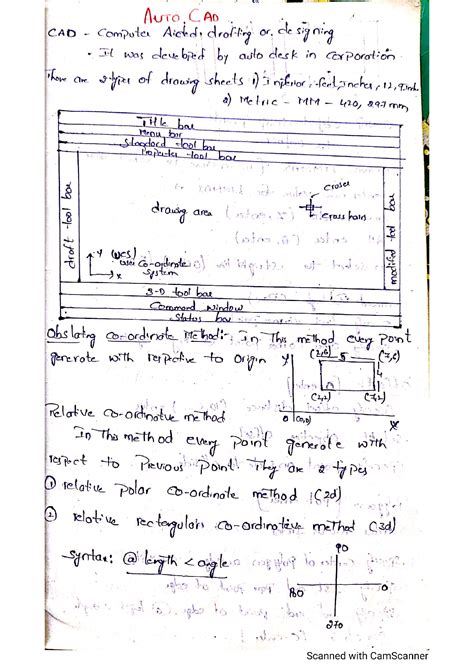 AUTO CAD
CAD - Computer Aided, drafting or, designing
• It was developed by auto desk in corporation
There are 2 types of drawing sheets 1) inferior, feet, inches, 12, 9 inch
2) Metric - MM - 420, 297 mm
Title bar
Menu bar
Standard tool bar
Properties tool bar
draft tool bar
drawing area
Croser
Cross hairs
modified tool bar
Y (UCS)
User Co-ordinate
System
X
3-D tool bar
Command window
Status bar
Obslating co-ordinate Method: In This method every point
generate with respective to origin
Y
(2,6)
5
(7,6)
4
(2,2)
(7,2)
0 (0,0)
X
Relative co-ordinative method
In This method every point generate with
respect to Previous point They are 2 types
① relative polar co-ordinate method (2d)
② relative rectangular co-ordinative method (3d)
Syntax: @ length < angle
90
180
0
270
Scanned with CamScanner